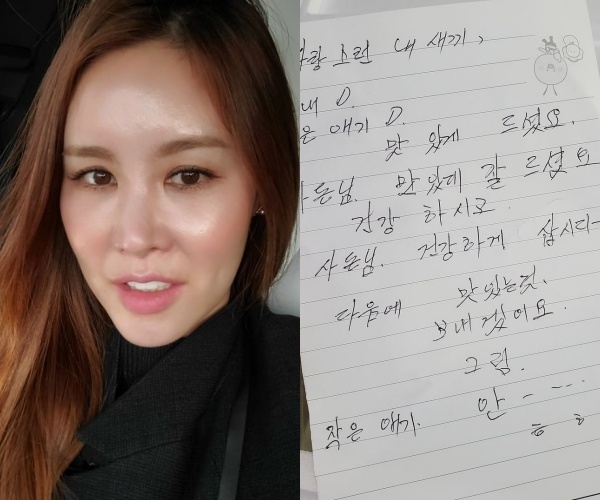 사랑 스런 내 새끼,
내 D.
은 애기 D.
맛 있게 드셨요.
사든님. 맛있데 잘 드셨요
건강 하시로
사든님. 건강하게 삽시다-
다음에 맛있는것.
보내 겠이요.
그럼.
안 - ----
작은 애기. ㅎ ㅎ